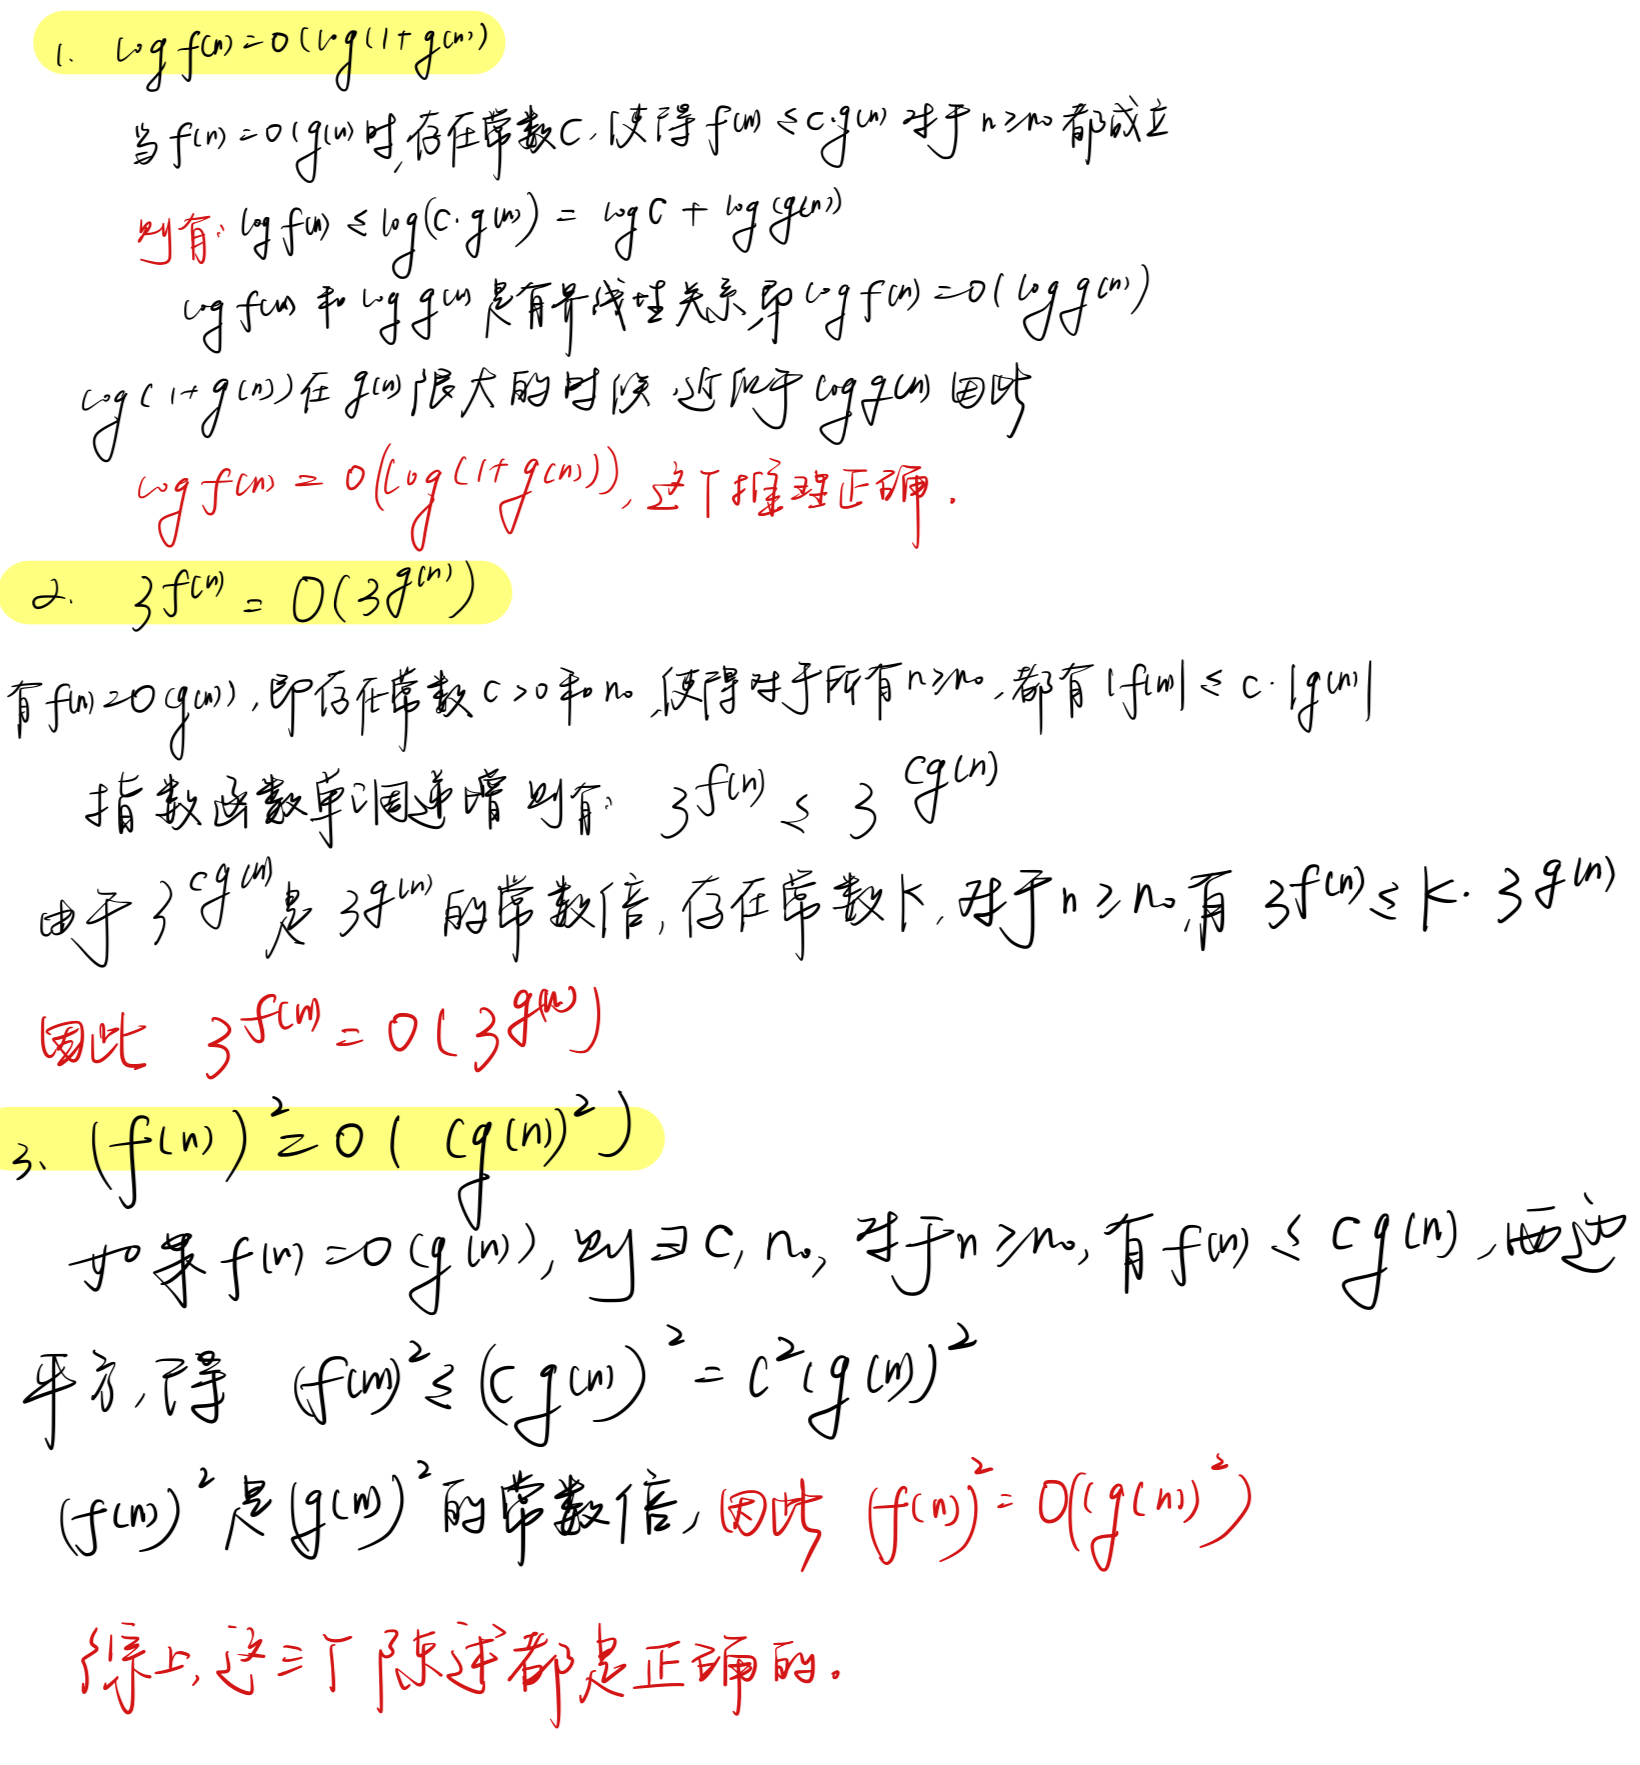 1. log f(n) = O(log(1+g(n))
当 f(n) = O(g(n)时,存在常数C,使得 f(n) ≤ c·g(n) 对于 n≥n₀ 都成立
则有: log f(n) ≤ log(C·g(n)) = log C + log(g(n))
log f(n) 和 log g(n) 是有界线性关系,即 log f(n) = O(log g(n))
log(1+g(n))在 g(n) 很大的时候,近似于 log g(n) 因此
log f(n) = O(log(1+g(n))), 这个推理正确.
2. 3^f(n) = O(3^g(n))
有f(n)=O(g(n)),即存在常数 c>0和n₀,使得对于所有n≥n₀,都有 |f(n)| ≤ c·|g(n)|
指数函数单调递增 则有: 3^f(n) ≤ 3^cg(n)
由于 3^cg(n) 是 3^g(n) 的常数倍,存在常数K,对于n≥n₀,有 3^f(n) ≤ K·3^g(n)
因此 3^f(n) = O(3^g(n))
3、(f(n))² = O((g(n))²)
如果 f(n) = O(g(n)), 则∃C, n₀, 对于n≥n₀, 有 f(n) ≤ Cg(n),两边
平方,得 (f(n))² ≤ (Cg(n))² = C²(g(n))²
(f(n))² 是 (g(n))² 的常数倍,因此 (f(n))² = O((g(n))²)
综上,这三个陈述都是正确的.